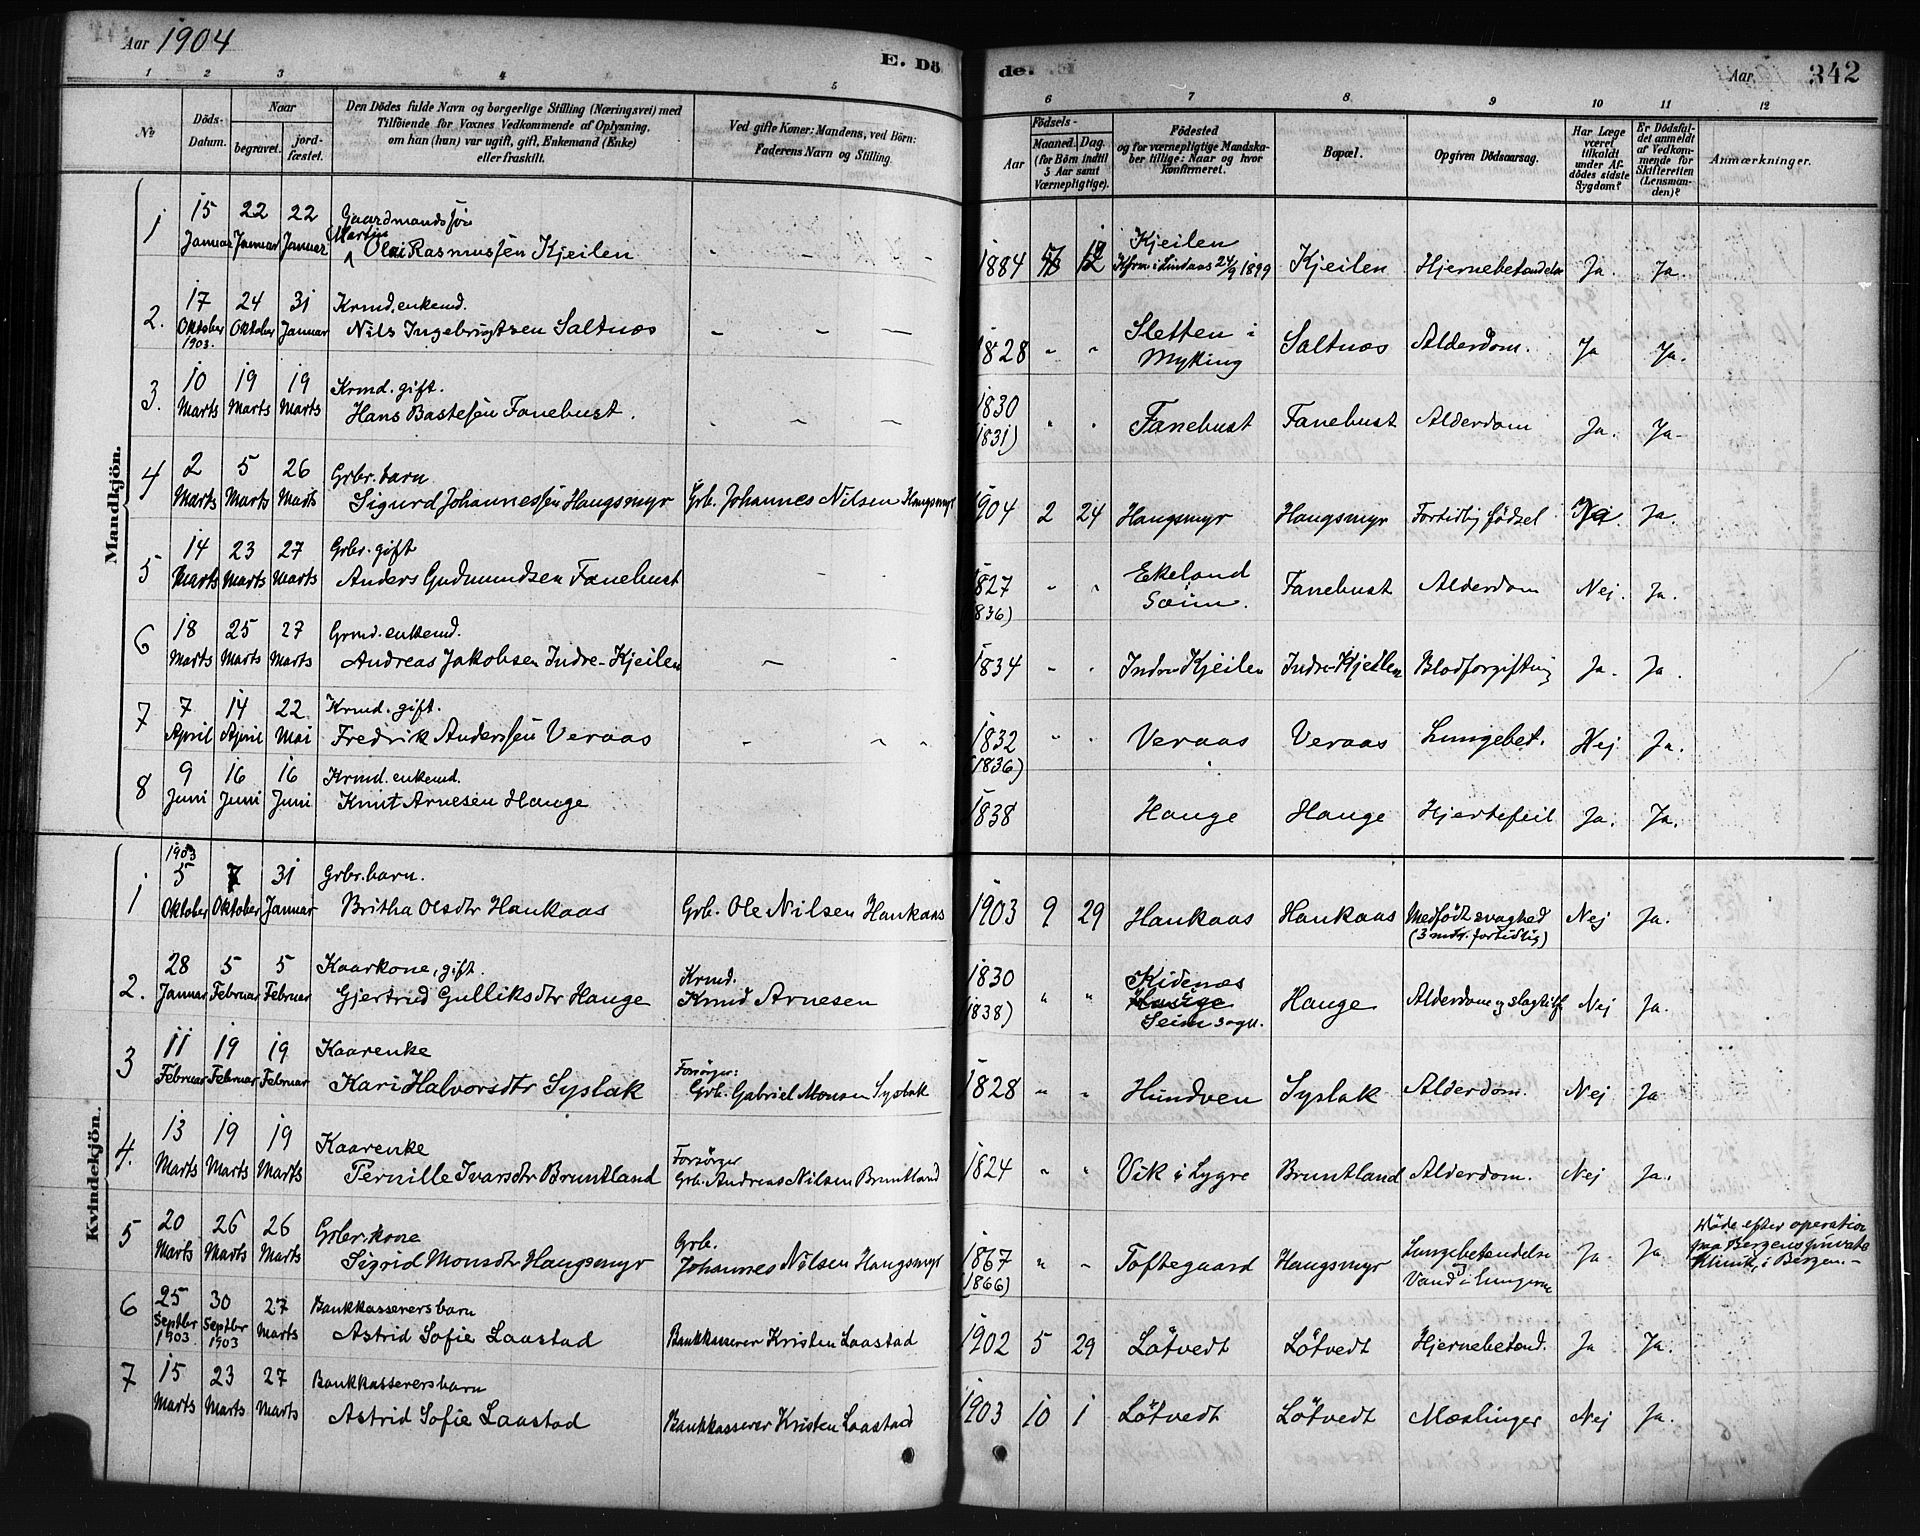 Aar 1904
E. Dö
de.
Aar
342
1 2 3 4 5 6 7 8 9 10 11 12
No
Döds-
Datum.
Naar
begravet.
jord-
fæstet.
Den Dödes fulde Navn og borgerlige Stilling (Næringsvei) med
Tilföiende for Voxnes Vedkommende af Oplysning,
om han (hun) var ugift, gift, Enkemand (Enke)
eller fraskilt.
Ved gifte Koner: Mandens, ved Börn:
Faderens Navn og Stilling.
Födsels-
Aar
Maaned. Dag.
(for Börn indtil
5 Aar samt
Værnepligtige).
Födested
og for værnepligtige Mandska-
ber tillige: Naar og hvor
konfirmeret.
Bopæl.
Opgiven Dödsaarsag.
Har Læge
været
tilkaldt
under Af-
dödes sidste
Sygdom?
Er Dödsfal-
det anmeldt
af Vedkom-
mende for
Skifteretten
(Lensman-
den)?
Anmærkninger.
Mandkjön.
1 15 Januar 22 Januar 22 Januar Gaardmandssøn
Martin
Olai Rasmussen Kjeilen 1884 12 Kjeilen
Kfrm. i Lindaas 24/9 1899 Kjeilen Hjernebetændelse Ja. Ja.
2. 17 Oktober 1903. 24 Oktober 31 Januar Krmd. enkemd.
Nils Ingebrigtsen Saltnæs 1828 " " Sletten i
Myking Saltnæs Alderdom. Ja Ja.
3. 10 Marts 19 Marts 19 Marts Krmd. gift.
Hans Bastesen Fanebust. 1830
(1831) " " Fanebust Fanebust Alderdom Ja. Ja
4 2 Marts 5 Marts 26 Marts Grbr. barn
Sigurd Johannessen Haugsmyr Grb. Johannes Nilsen Haugsmyr 1904 2 24 Haugsmyr Haugsmyr Fortidlig fødsel Ja.
5 14 Marts 23 Marts 27 Marts Grbr. gift
Anders Gudmundsen Fanebust 1827
(1836) " " Ekeland
Fanebust Alderdom Nej. Ja.
6 18 Marts 25 Marts 27 Marts Grmd. enkemd.
Andreas Jakobsen Indre-Kjeilen 1834 " " Indre Kjeilen Indre-Kjeilen Blodforgiftning Ja. Ja.
7 7 April 14 April 22 Mai Krmd. gift.
Fredrik Anderssen Veraas 1832
(1836) " " Veraas Veraas Lungebet. Nej Ja.
8 9 Juni 16 Juni 16 Juni Krmd. enkemd.
Knut Arnesen Hauge 1838 Hauge Hauge Hjertefeil Ja. Ja.
Kvindekjön.
1 1903 5 Oktober 7 Oktober 31 Januar Grbr. barn.
Britha Olsdtr Haukaas Grb. Ole Nilsen Haukaas 1903 9 29 Haukaas Haukaas Medfødt svaghed
(3 mdr. fortidlig) Nej Ja.
2. 28 Januar 5 Februar 5 Februar Kaarkone, gift.
Gjertrud Gulliksdtr Hauge Krmd.
Knud Arnesen 1830
(1838) " " Skidenæs
Hauge
Seim sogn. Hauge Alderdom og slagtilf. Nej Ja.
3 11 Februar 19 Februar 19 Februar Kaarenke
Kari Halvorsdtr Syslak Forsørger:
Grb. Gabriel Monsen Syslak 1828 " " Hundven Syslak Alderdom. Nej Ja
4. 13 Marts 19 Marts 19 Marts Kaarenke
Pernille Ivarsdtr Bruntland Forsørger
Grb. Andreas Nilsen Bruntland 1824 " " Vik i Lygre Bruntland Alderdom. Nej Ja.
5 20 Marts 26 Marts 26 Marts Grbr. kone
Sigrid Monsdtr Haugsmyr Grb.
Johannes Nilsen Haugsmyr 1867
(1866) " " Toftegaard Haugsmyr Lungebetændelse
Vand i lungerne Ja Ja. Døde efter operation
paa Bergens private
Klinik, i Bergen.-
6 25 Septbr 1903 30 Septbr 1903 27 Marts Bankkasserersbarn
Astrid Sofie Laastad Bankkasserer Kristen Laastad 1902 5 29 Løtvedt Løtvedt Hjernebetænd. Ja Ja.
7 15 Marts 23 Marts 27 Marts Bankkasserersbarn
Astrid Sofie Laastad Bankkasserer Kristen Laastad 1903 10 1 Løtvedt Løtvedt Mæslinger Nej Ja.